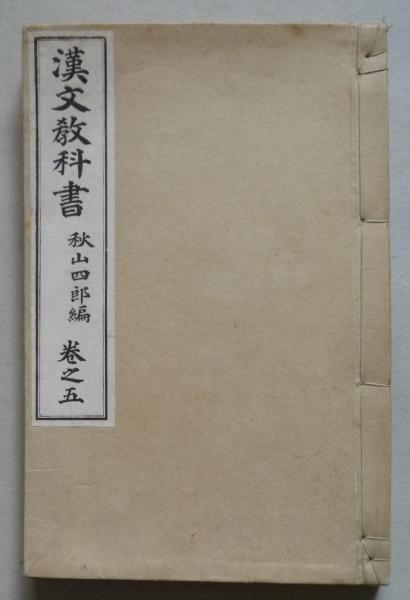 漢文教科書 秋山四郎編 卷之五